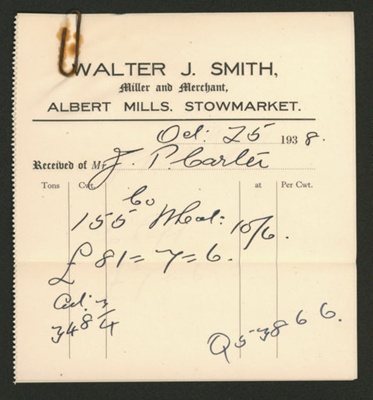 WALTER J. SMITH,
Miller and Merchant,
ALBERT MILLS. STOWMARKET.
Oct: 25 1938.
Received of Mr J. P. Carter
Tons Cwt. at Per Cwt.
155 Co Wheat: 10/6.
£81=7=6.
3484
Q53866.